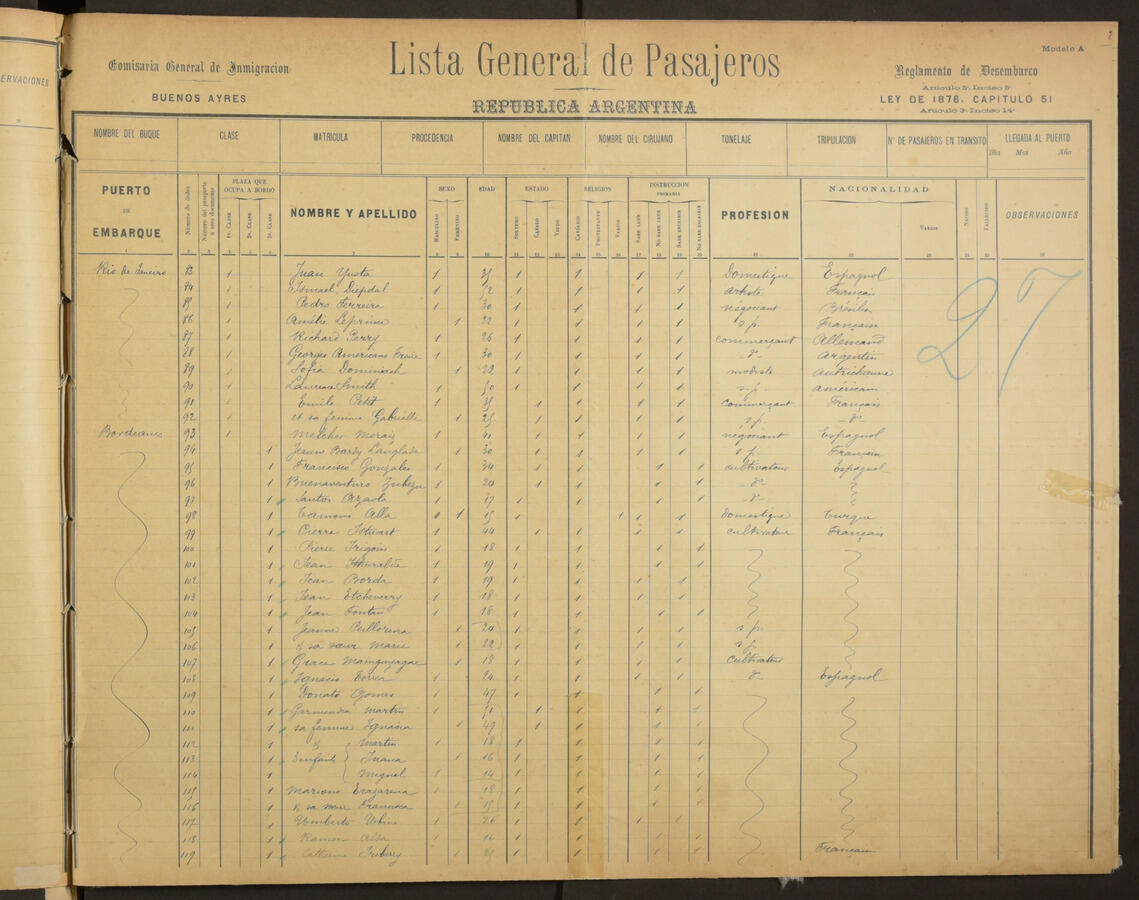 2
ERVACIONES
Comisaria General de Inmigracion
BUENOS AYRES
Lista General de Pasajeros
REPUBLICA ARGENTINA
Modelo A
Reglamento de Desembarco
Articulo 5º Inciso 3º
LEY DE 1876, CAPITULO 51
Articulo 9º Inciso 14º
NOMBRE DEL BUQUE CLASE MATRICULA PROCEDENCIA NOMBRE DEL CAPITAN NOMBRE DEL CIRUJANO TONELAJE TRIPULACION Nº DE PASAJEROS EN TRANSITO LLEGADA AL PUERTO
Dia Mes Año
PUERTO DE EMBARQUE Número de órden PLAZA QUE OCUPA A BORDO 1ª CLASE 2ª CLASE 3ª CLASE NOMBRE Y APELLIDO SEXO MASCULINO FEMENINO EDAD ESTADO SOLTERO CASADO VIUDO RELIGION CATÓLICO PROTESTANTE VARIOS INSTRUCCION PRIMARIA SABE LEER NO SABE LEER SABE ESCRIBIR NO SABE ESCRIBIR PROFESION NACIONALIDAD VARIOS NACIDO FALLECIDO OBSERVACIONES
27
Rio de Janeiro 83 1 Juan Yusta 1 35 1 1 1 1 Domestique Espagnol
84 1 Ismael Diepdal 1 12 1 1 1 1 artiste Français
85 1 Pedro Ferreira 1 30 1 1 1 1 négociant Brésilien
86 1 Amélie Leprince 1 22 1 1 1 1 s.p. Française
87 1 Richard Perry 1 26 1 1 1 1 commerçant Allemand
88 1 Georges Americano Freire 1 30 1 1 1 1 dº Argentin
89 1 Sofia Dominach 1 29 1 1 1 1 modiste Autrichienne
90 1 Laurence Smith 1 50 1 1 1 1 s.p. américain
91 1 Emile Petit 1 35 1 1 1 1 commerçant Français
92 1 et sa femme Gabrielle 1 25 1 1 1 1 s.p. dº
Bordeaux 93 1 Melchor Moray 1 41 1 1 1 1 négociant Espagnol
94 1 Jesuus Bardy Langlade 1 30 1 1 1 1 s.p. Français
95 1 Francisco Gonzales 1 34 1 1 1 1 cultivateur Espagnol
96 1 Buenaventuro 1 24 1 1 1 1 dº
97 1 Santos Arzaola 1 17 1 1 1 1 dº
98 1 Alla 1 15 1 1 1 1 domestique Turque
99 1 Pierre 1 44 1 1 1 1 cultivateur Français
100 1 Pierre Irigoin 1 18 1 1 1 1
101 1 Jean 1 19 1 1 1 1
102 1 Jean Borda 1 19 1 1 1 1
103 1 Jean Etcheverry 1 18 1 1 1 1
104 1 Jean Fontan 1 18 1 1 1 1
105 1 Jeanne 1 24 1 1 1 1 s.p.
106 1 & sa sœur Marie 1 22 1 1 1 1 s.p.
107 1 Grace 1 18 1 1 1 1 cultivateur
108 1 Ignacio Correa 1 24 1 1 1 1 dº Espagnol
109 1 Donato Gomes 1 47 1 1 1 1
110 1 Garmendia Martin 1 51 1 1 1 1
111 1 sa femme Ignacia 1 49 1 1 1 1
112 1 & Martin 1 18 1 1 1 1
113 1 3 enfants Juana 1 16 1 1 1 1
114 1 Miguel 1 14 1 1 1 1
115 1 Mariano 1 18 1 1 1 1
116 1 & sa sœur Francisca 1 15 1 1 1 1
117 1 Umberto Urbine 1 26 1 1 1 1
118 1 Ramon 1 16 1 1 1 1
119 1 Catherine Iriberry 1 21 1 1 1 1 Français